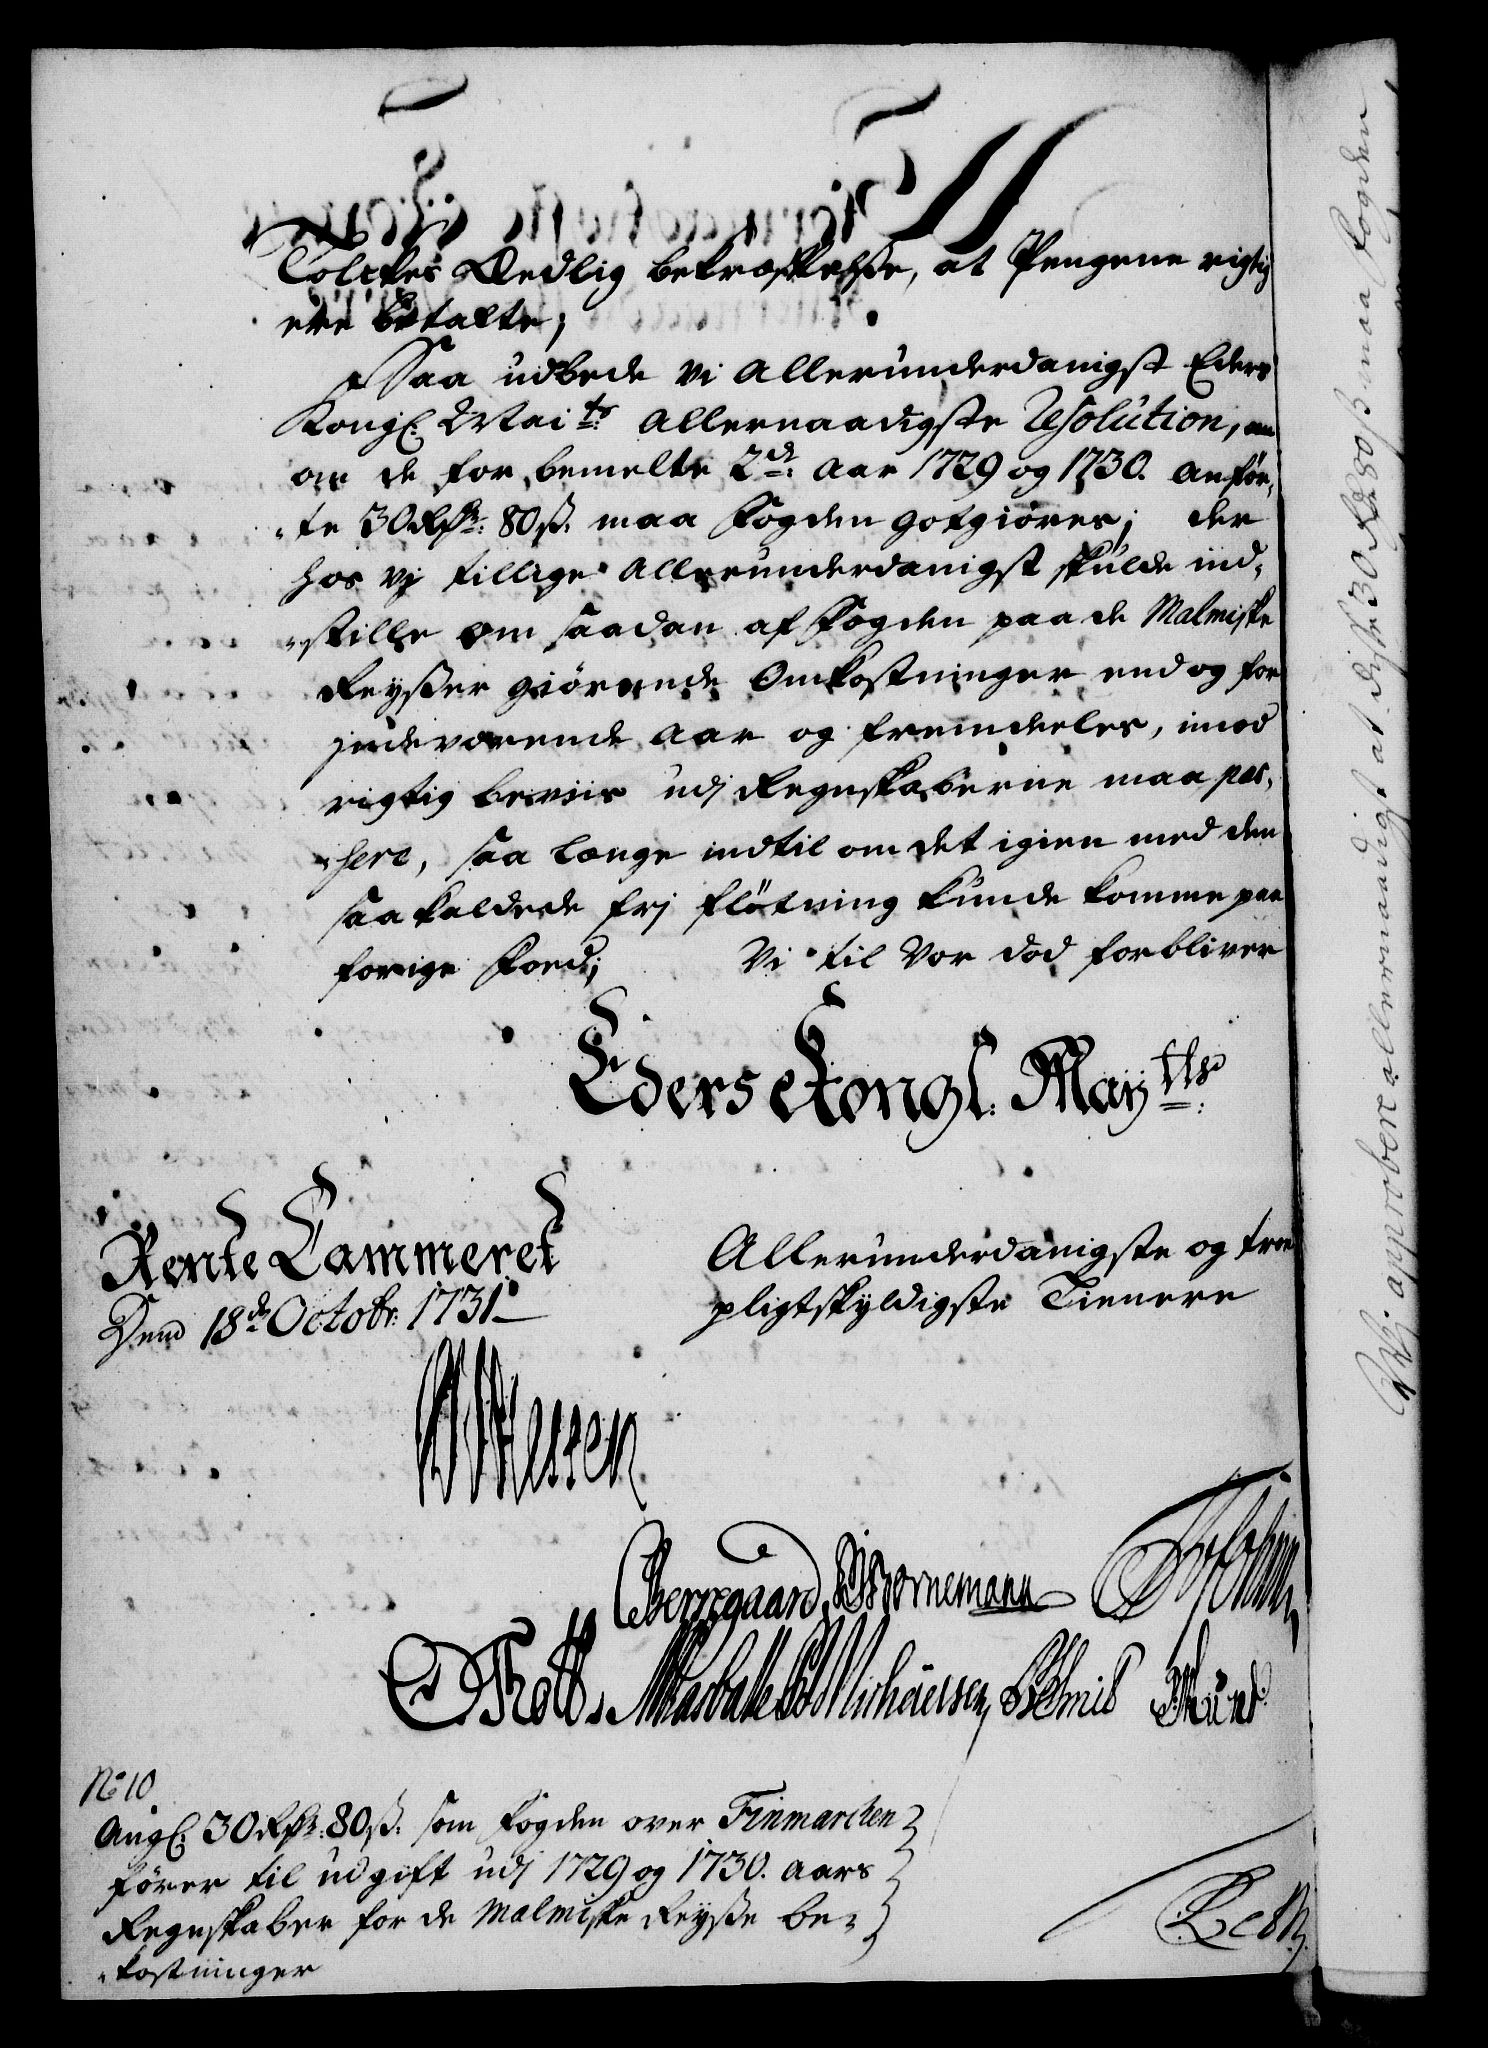 Tolckes Eedlig bekræftelse, at Pengene rigtig
ere betalte;
Saa udbede vi allerunderdanigst Eders
Kongl: Mai ts: allernaadigste Resolution, om
om de for bemelte 2de: aar 1729 og 1730. anför-
-te 30 Rdr: 80 ß. maa Fogden gotgiöres; der
hos vj tillige allerunderdanigst skulde ind-
-stille om saadan af Fogden paa de Malmiske
Reyser giörende Omkostninger end og for
indeværende aar og fremdeeles, imod
rigtig beviis udj Regnskaberne maa pas-
-sere, saa længe indtil om det igien med den
saa kaldede frj flötning kunde komme paa
forige Foed; Vi til vor död forbliver
Eders Kongl: May tts:
Rente Cammeret
Dend 18de Octobr: 1731
Allerunderdanigste og troe
pligtskyldigste Tienere
Berregaard, Bornemann
Thott, Michelsen, Schmid
No 10
Angl: 30 Rdr: 80 ß. som Fogden over Finmarcken
förer til udgift udj 1729 og 1730. aars
Regnskaber for de Malmiske Reyse be-
-kostninger
Vi approbere allernaadigst at disse 30 Rd 80 ß maa Fogden